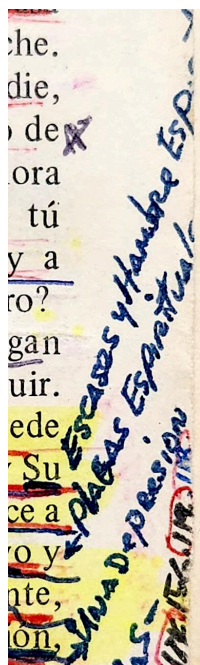 che.
die,
o de
ora
tú
y a
ro?
gan
uir.
ede
y Su
ce a
vo y
nte,
ión,
Escases y Hambre Esp
Plagas Espirituales
Una Depresión